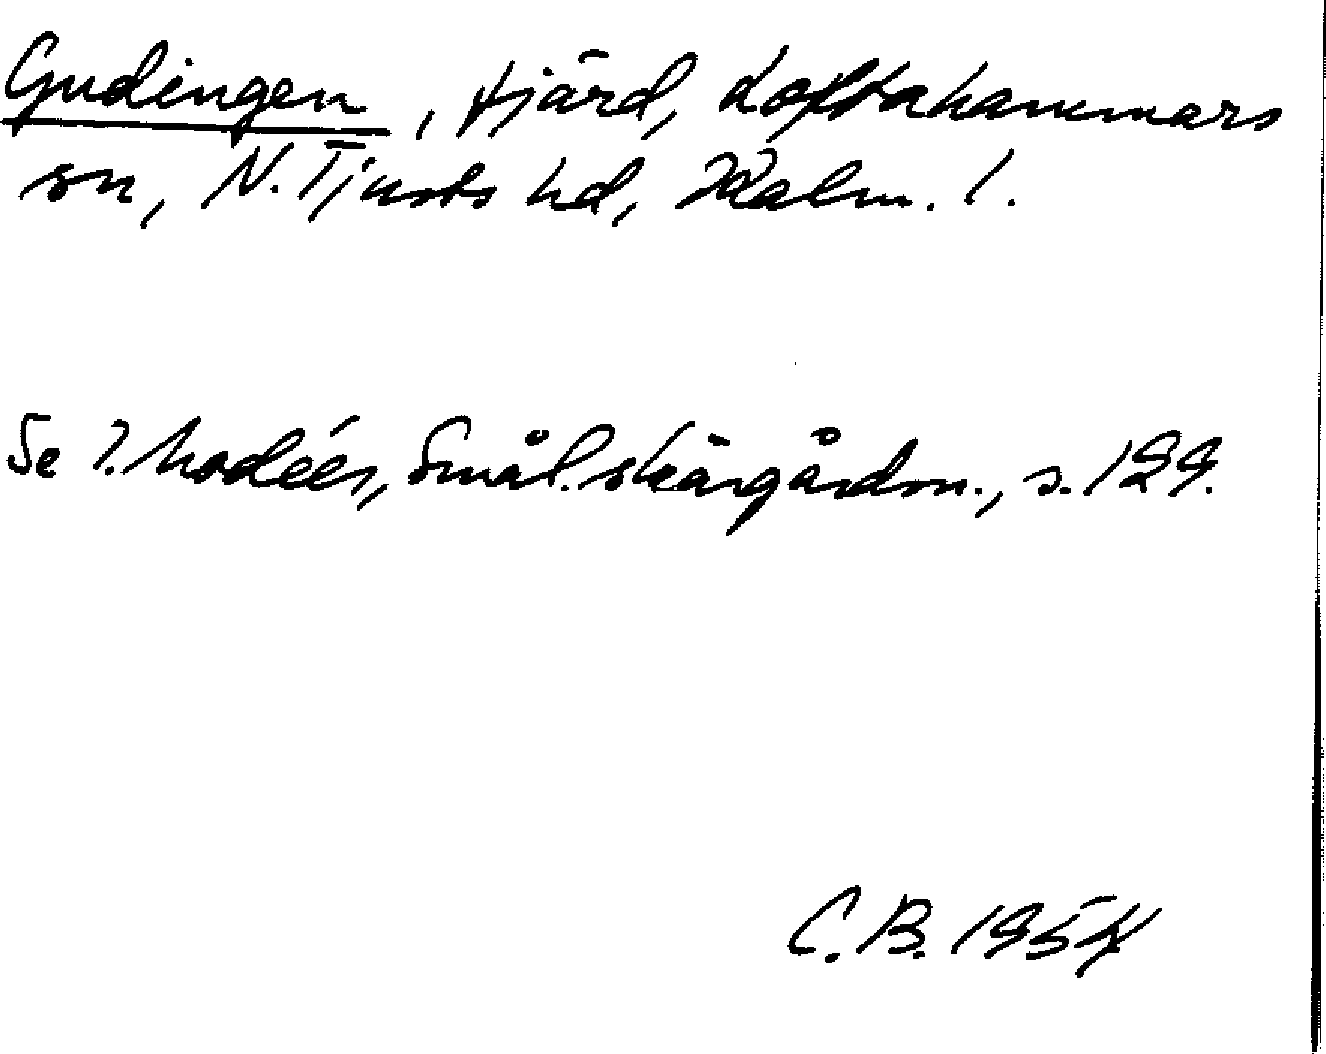 Gudingen, fjärd, Loftahammars
sn, N. Tjusts hd, Kalm. l.
Se I. Modéer, Smål. skärgårdsn., s. 129.
C. B. 1954